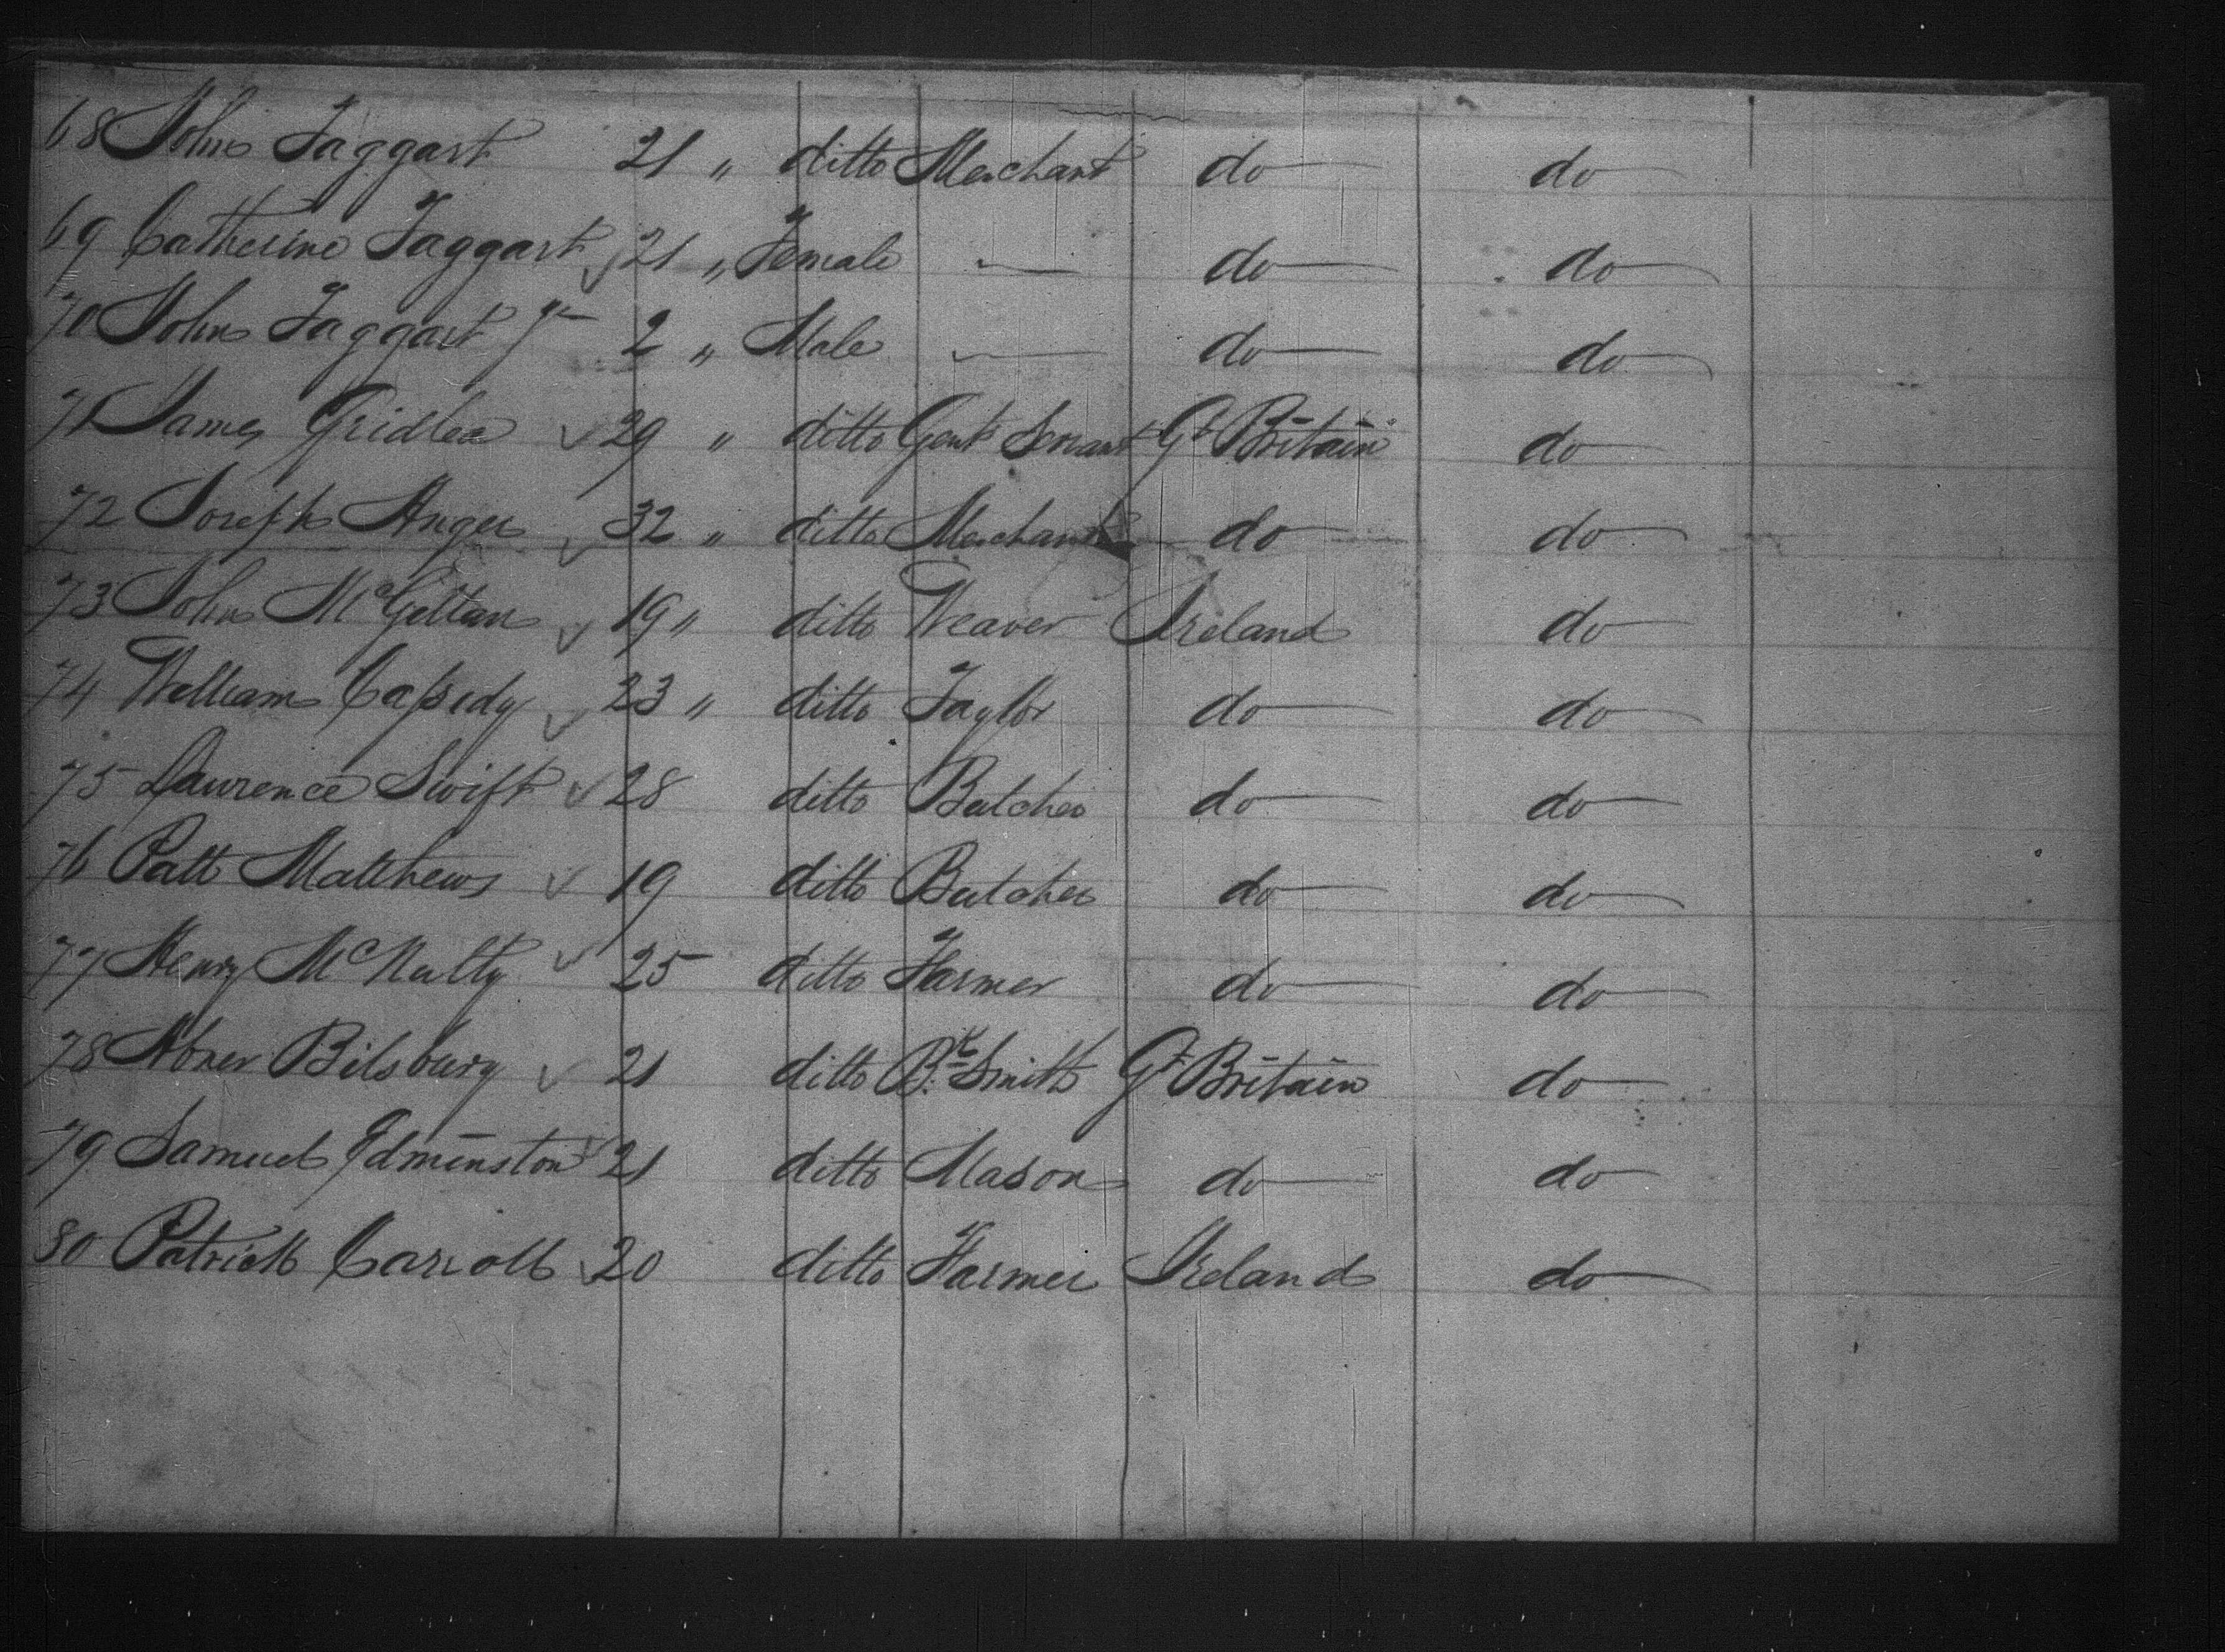 68 John Taggart 21 " ditto Merchant do do
69 Catherine Taggart 21 " Female — do do
70 John Taggart Jr 2 " Male — do do
71 James Gridlea 29 " ditto Gent Servant Gt Britain do
72 Joseph Anger 32 " ditto Merchant do do
73 John McGettan 19 " ditto Weaver Ireland do
74 William Cassedy 23 " ditto Taylor do do
75 Lawrence Swift 28 ditto Butcher do do
76 Patt Matthews 19 ditto Butcher do do
77 Henry McNulty 25 ditto Farmer do do
78 Abner Bilsbury 21 ditto Bk Smith Gt Britain do
79 Samuel Edminston 21 ditto Mason do do
80 Patrick Carroll 20 ditto Farmer Ireland do